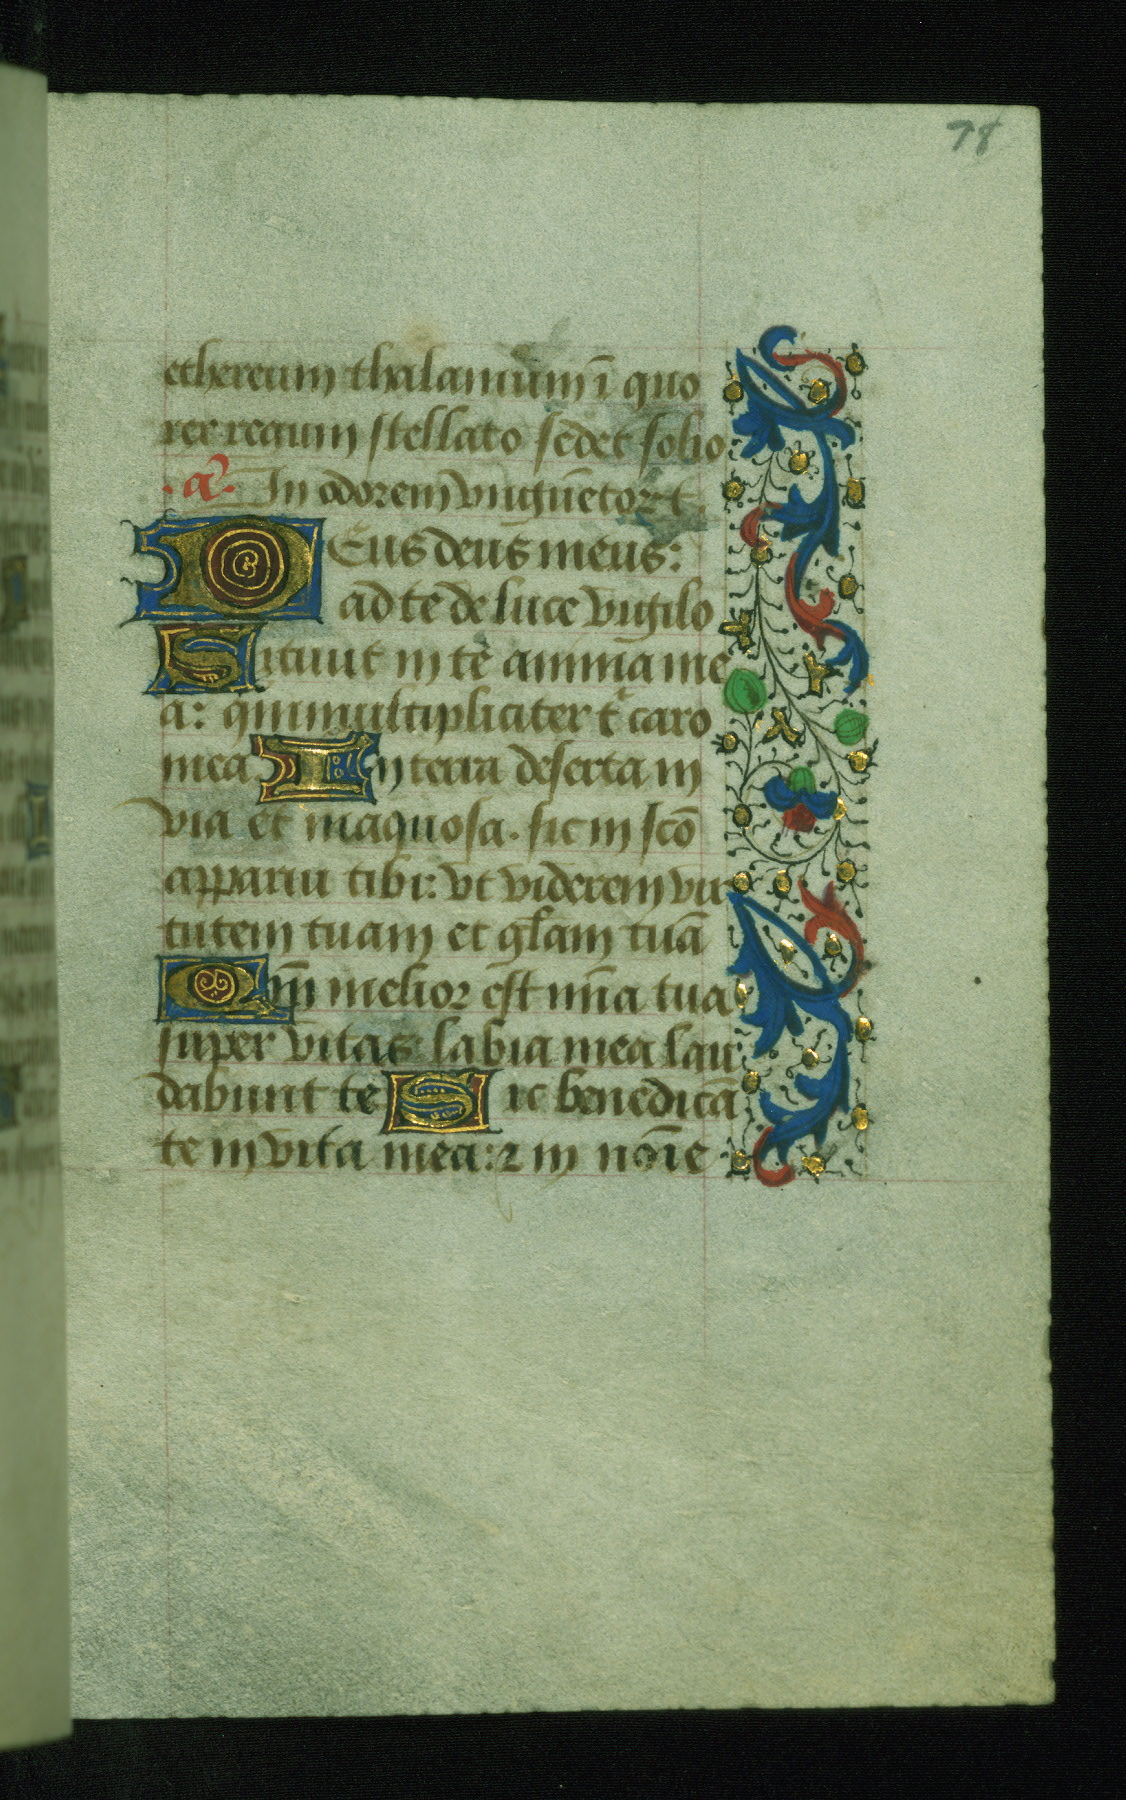 78
ethereum thalamum ī quo
rex regum stellato sedet solio
.a. In odorem vnguētor t.
DEus deus meus:
ad te de luce vigilo
Sitiuit in te anima me
a: quam multipliciter t caro
mea In terra deserta in
via et inaquosa. sic in scō
apparui tibi: vt viderem vir
tutem tuam et gľam tuā
Qm̄ melior est mīa tua
super vitas labia mea lau
dabunt te Sic benedicā
te in vita mea: ꝛ in noīe